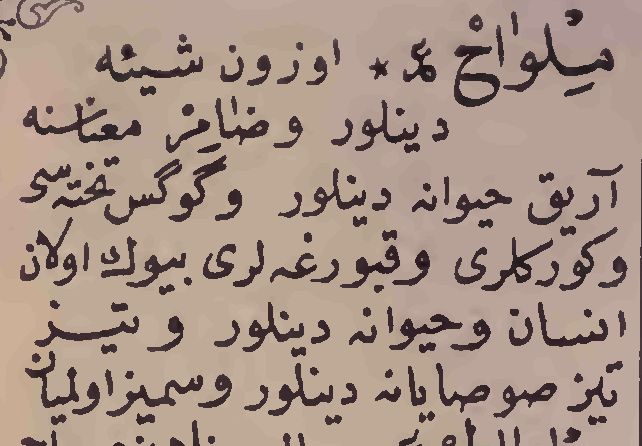 مِلْوَاحْ ✶ اوزون شیئه
دینلور وضَامِرْ معناسنه
آریق حیوانه دینلور وگوگس تخته‌سی
وکورکلری وقبورغه‌لری بیوك اولان
انسان وحیوانه دینلور وتیز
تیز صوصایانه دینلور وسمیز اولمیان